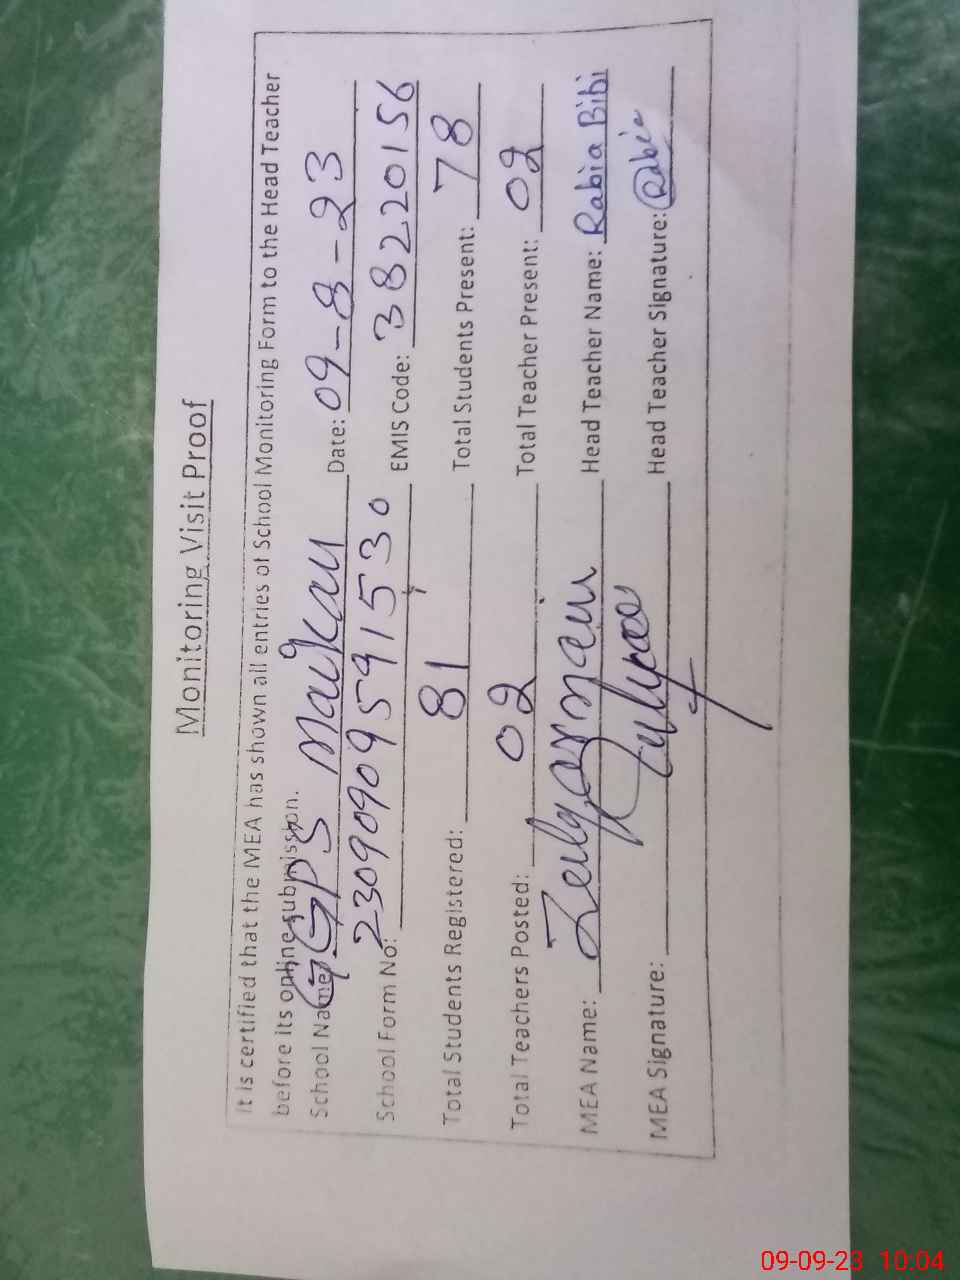 Monitoring Visit Proof
It is certified that the MEA has shown all entries of School Monitoring Form to the Head Teacher
before its online submission.
School Name: GGPS Maikan Date: 09-8-23
School Form No: 23090909591530 EMIS Code: 38220156
Total Students Registered: 81 Total Students Present: 78
Total Teachers Posted: 02 Total Teacher Present: 02
MEA Name: Zulqarnain Head Teacher Name: Rabia Bibi
MEA Signature: Head Teacher Signature: Rabia
09-09-23 10:04